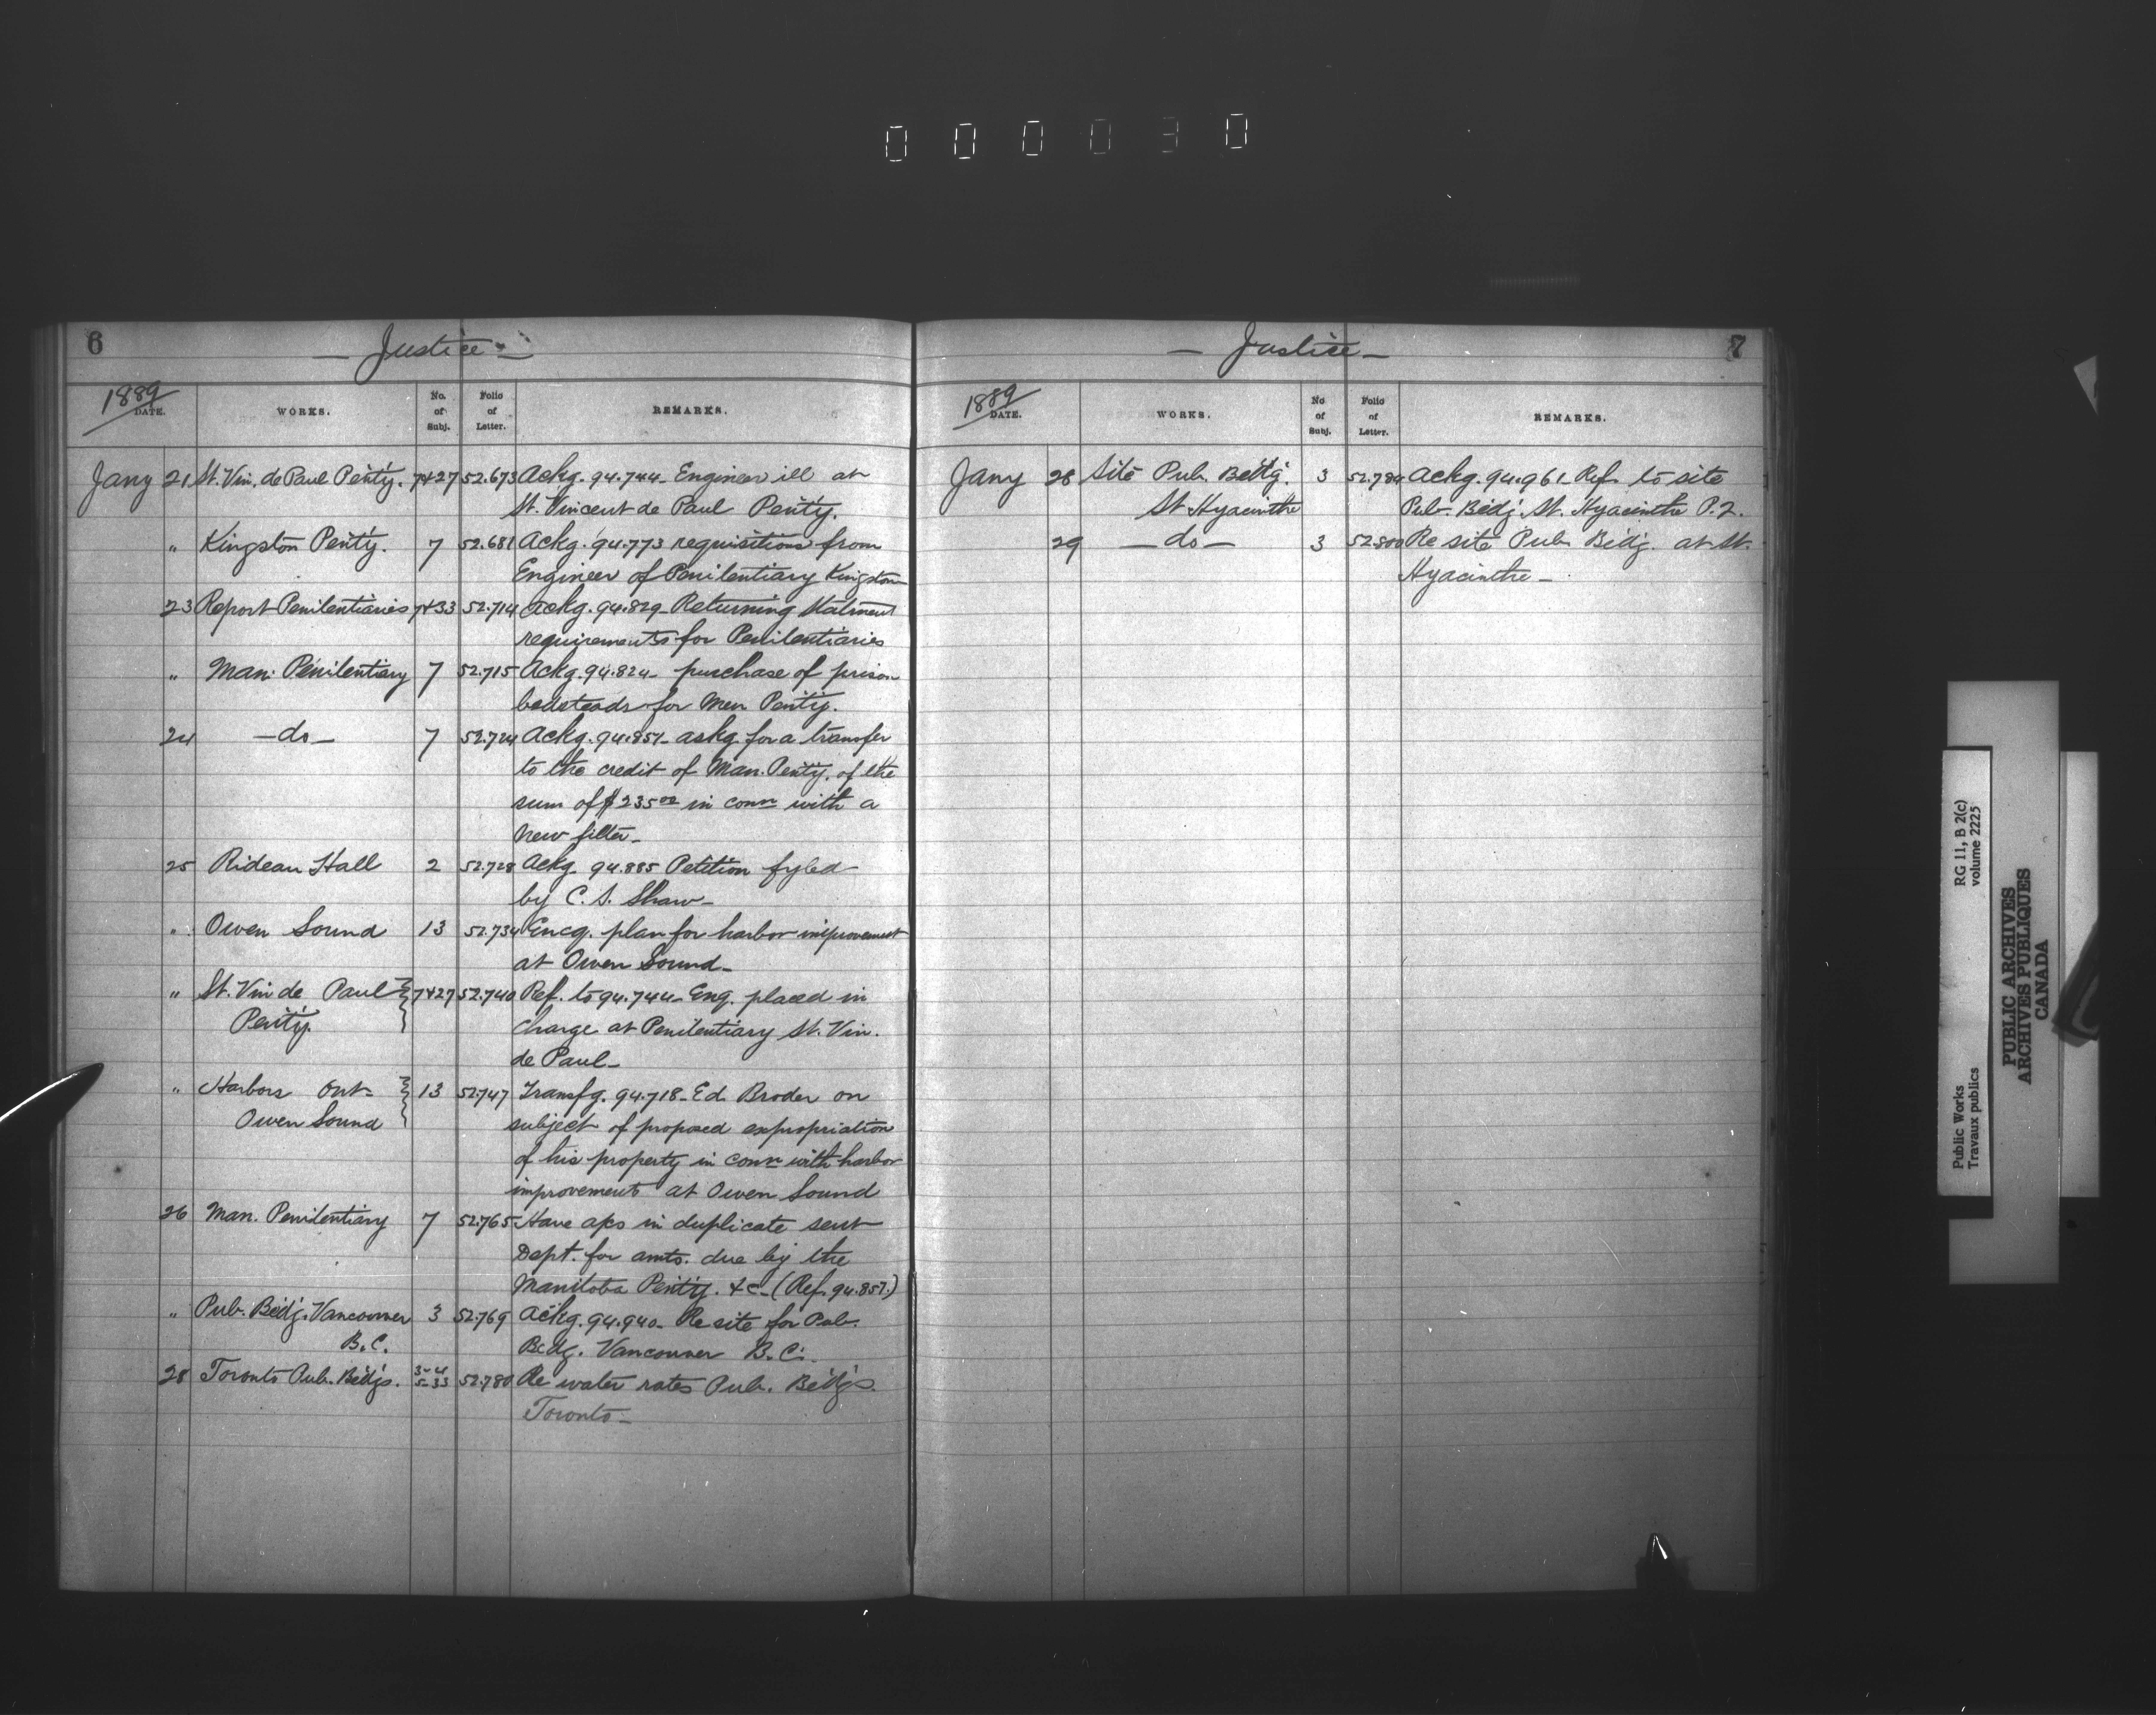 000030
6
— Justice —
1889
DATE.
WORKS.
No. of Subj.
Folio of Letter.
REMARKS.
Jany 21 St. Vin. de Paul Penty. 7+27 52.673 Ackg. 94.744 - Engineer ill at
St. Vincent de Paul Penty.
" Kingston Penty. 7 52.681 Ackg. 94.773 requisitions from
Engineer of Penitentiary Kingston
23 Report Penitentiaries 7+33 52.714 Ackg. 94.829 - Returning Statment
requirements for Penitentiaries
" Man: Penitentiary 7 52.715 Ackg. 94.824 - purchase of prison
bedsteads for Man Penty.
24 — do — 7 52.724 Ackg. 94.857 - askg for a transfer
to the credit of Man. Penty. of the
sum of $235.00 in conn with a
new filter —
25 Rideau Hall 2 52.728 Ackg 94.885 Petition fyled
by C. S. Shaw —
" Owen Sound 13 52.734 Encg. plan for harbor improvement
at Owen Sound —
" St. Vin de Paul 7+27 52.740 Ref. to 94.744 - Eng. placed in
Penty.
charge at Penitentiary St. Vin.
de Paul —
" Harbors Ont - 13 52.747 Transfg. 94.718 - Ed. Broder on
Owen Sound
subject of proposed expropriation
of his property in conn with harbor
improvements at Owen Sound
26 Man. Penitentiary 7 52.765 Have a/cs in duplicate sent
Dept. for amts. due by the
Manitoba Penty. &c - (Ref. 94.857.)
" Pub. Bldg. Vancouver 3 52.769 Ackg. 94.940 - Re site for Pub.
B.C.
Bldg. Vancouver B.C.
28 Toronto Pub. Bldgs. 3-4 5-33 52.780 Re water rates Pub. Bldgs.
Toronto —
7
— Justice —
1889
DATE.
WORKS.
No of Subj.
Folio of Letter.
REMARKS.
Jany 28 Site Pub. Bldg. 3 52.784 Ackg. 94.961 - Ref. to site
St Hyacinthe
Pub. Bldg. St. Hyacinthe P.Q.
29 — do — 3 52.800 Re site Pub Bldg. at St.
Hyacinthe —
Public Works
Travaux publics
RG 11, B 2(c)
volume 2225
PUBLIC ARCHIVES
ARCHIVES PUBLIQUES
CANADA